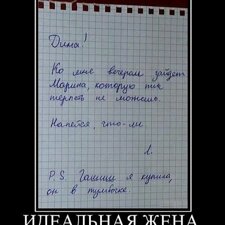 Дима!
Ко мне вечером зайдет
Марина, которую ты
терпеть не можешь.
Напейся, что-ли.
Л.
P.S. Гашиш я купила,
он в тумбочке.
ИДЕАЛЬНАЯ ЖЕНА